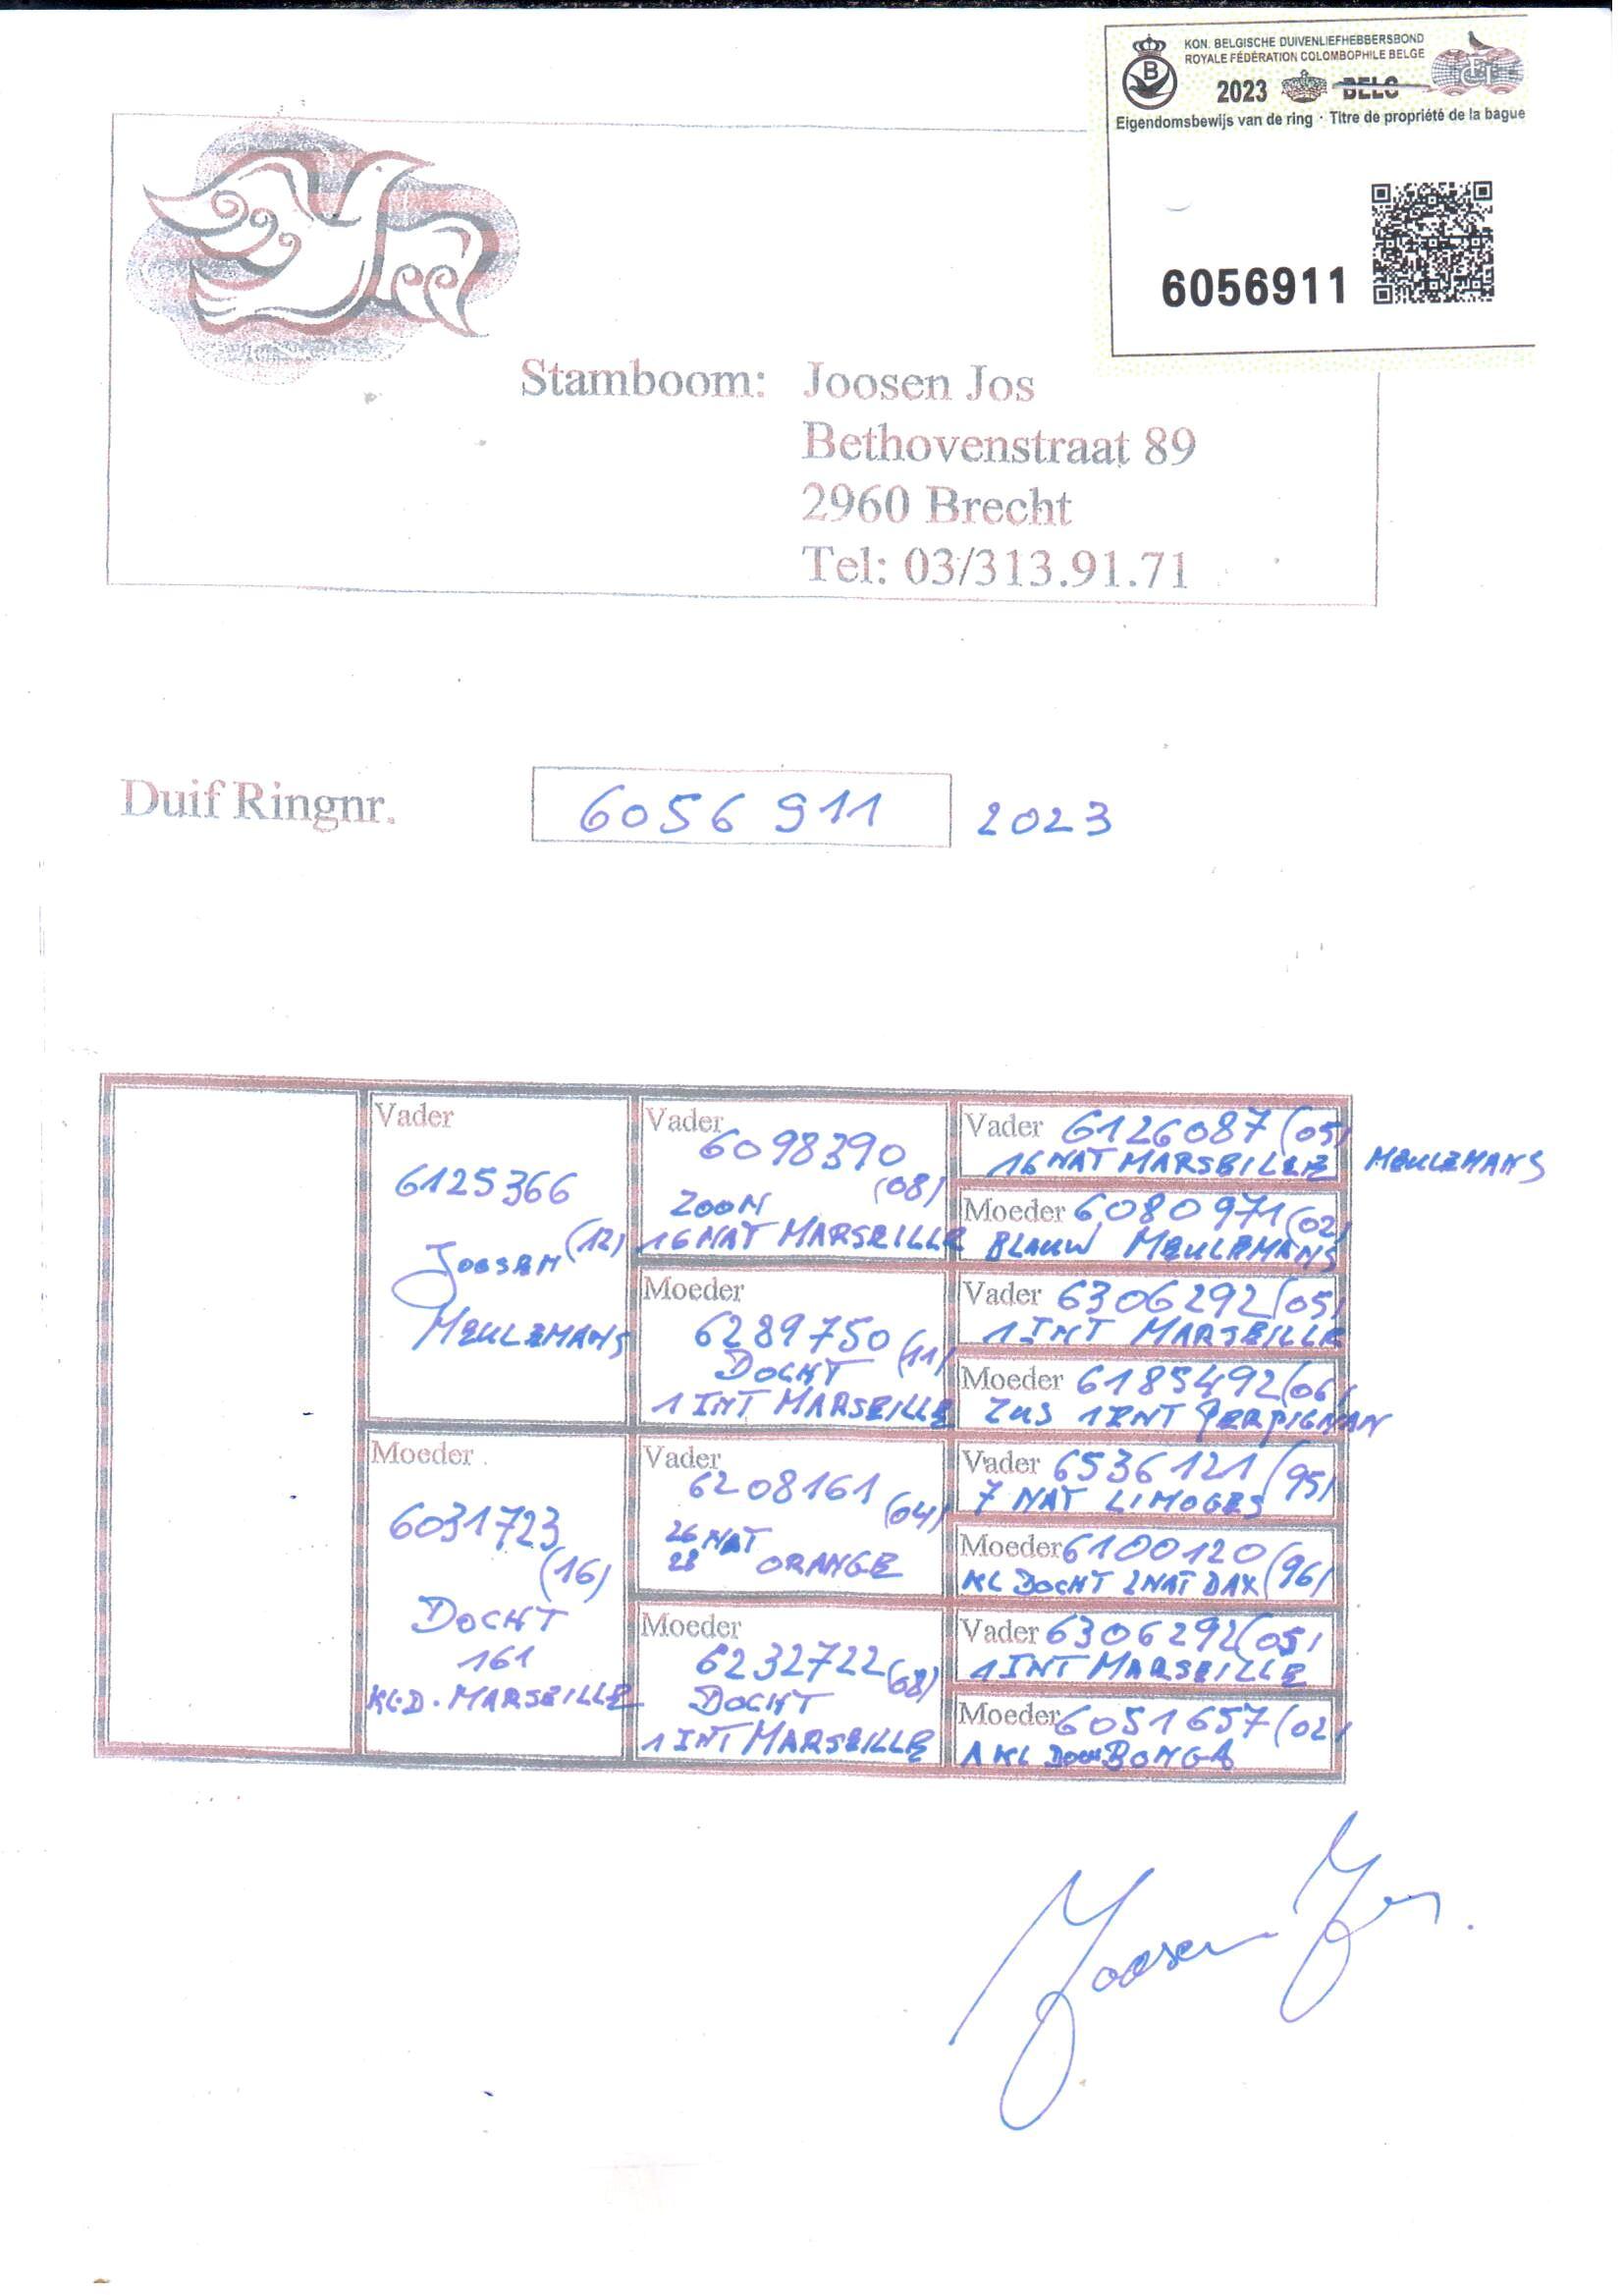 KON. BELGISCHE DUIVENLIEFHEBBERSBOND
ROYALE FÉDÉRATION COLOMBOPHILE BELGE
2023 BELG
Eigendomsbewijs van de ring · Titre de propriété de la bague
6056911
Stamboom: Joosen Jos
Bethovenstraat 89
2960 Brecht
Tel: 03/313.91.71
Duif Ringnr. 6056 911 2023
Vader
6125366
(12)
JOOSEN
MEULEMANS
Moeder
6031723
(16)
DOCHT
161
KL.D. MARSEILLE
Vader
6098390
(08)
ZOON
16 NAT MARSEILLE
Moeder
6289750 (11)
DOCHT
1 INT MARSEILLE
Vader
6208161
(04)
26 NAT
28 ORANGE
Moeder
6232722 (08)
DOCHT
1 INT MARSEILLE
Vader 6126087 (05)
16 NAT MARSEILLE MEULEMANS
Moeder 6080971 (02)
BLAUW MEULEMANS
Vader 6306292 (05)
1 INT MARSEILLE
Moeder 6185492 (06)
ZUS 1 INT PERPIGNAN
Vader 6536121 (95)
7 NAT LIMOGES
Moeder 6100120 (96)
KL DOCHT 2 NAT DAX
Vader 6306292 (05)
1 INT MARSEILLE
Moeder 6051657 (02)
A KL DOCH BONGA
Joosen Jos.